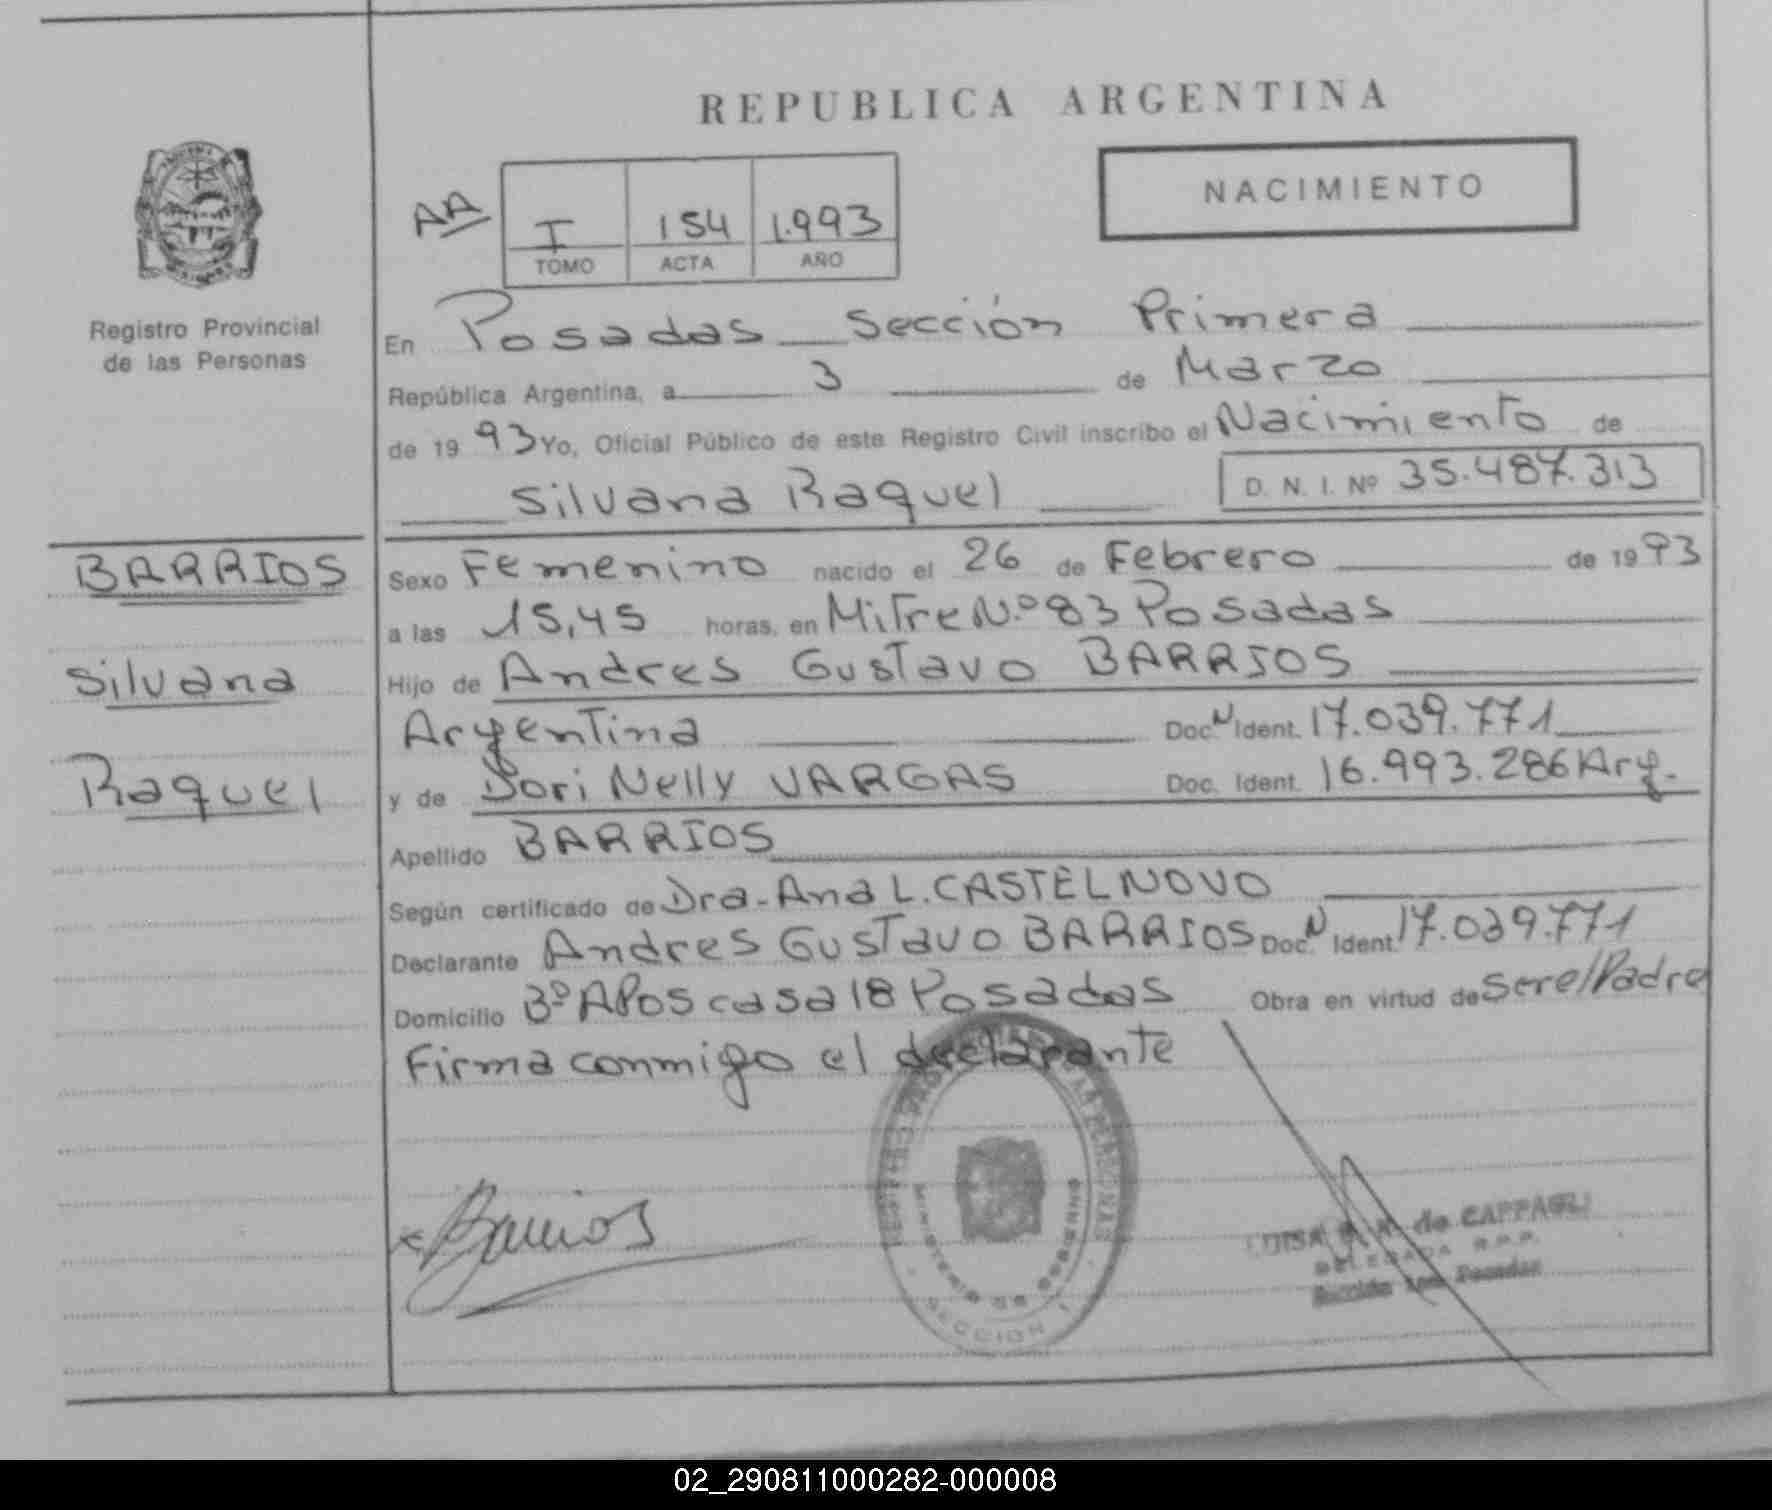 REPUBLICA ARGENTINA
NACIMIENTO
AA
I 154 1.993
TOMO ACTA AÑO
Registro Provincial
de las Personas
En Posadas Sección Primera
República Argentina, a 3 de Marzo
de 1993 Yo, Oficial Público de este Registro Civil inscribo el Nacimiento de
Silvana Raquel D. N. I. Nº 35.487.313
BARRIOS
Silvana
Raquel
Sexo Femenino nacido el 26 de Febrero de 1993
a las 15,45 horas, en Mitre N.º 83 Posadas
Hijo de Andres Gustavo BARRIOS
Argentina Doc. N Ident. 17.039.771
y de Dori Nelly VARGAS Doc. Ident. 16.993.286 Arg.
Apellido BARRIOS
Según certificado de Dra. Ana L. CASTELNOVO
Declarante Andres Gustavo BARRIOS Doc. N Ident. 17.039.771
Domicilio Bº APOS casa 18 Posadas Obra en virtud de Ser el Padre
Firma conmigo el declarante
Barrios
MINISTERIO DE GOBIERNO
SECCION 1
LUISA de CAPPAGLI
DELEGADA R.P.P.
Sección 1ra. Posadas
02_290811000282-000008